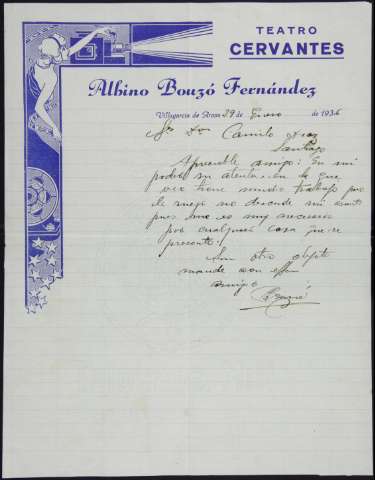 TEATRO
CERVANTES
Albino Bouzó Fernández
Villagarcía de Arosa 29 de Enero de 1936
Sr Don Camilo Diaz
Santiago
Apreciable amigo: En mi
poder su atenta en la que
veo tiene mucho trabajo por
le ruego no descuide mi asunto
pues me es muy necesario
por cualquier cosa que se
presente.
Sin otro objeto
mande a su affmo
amigo
Bouzó